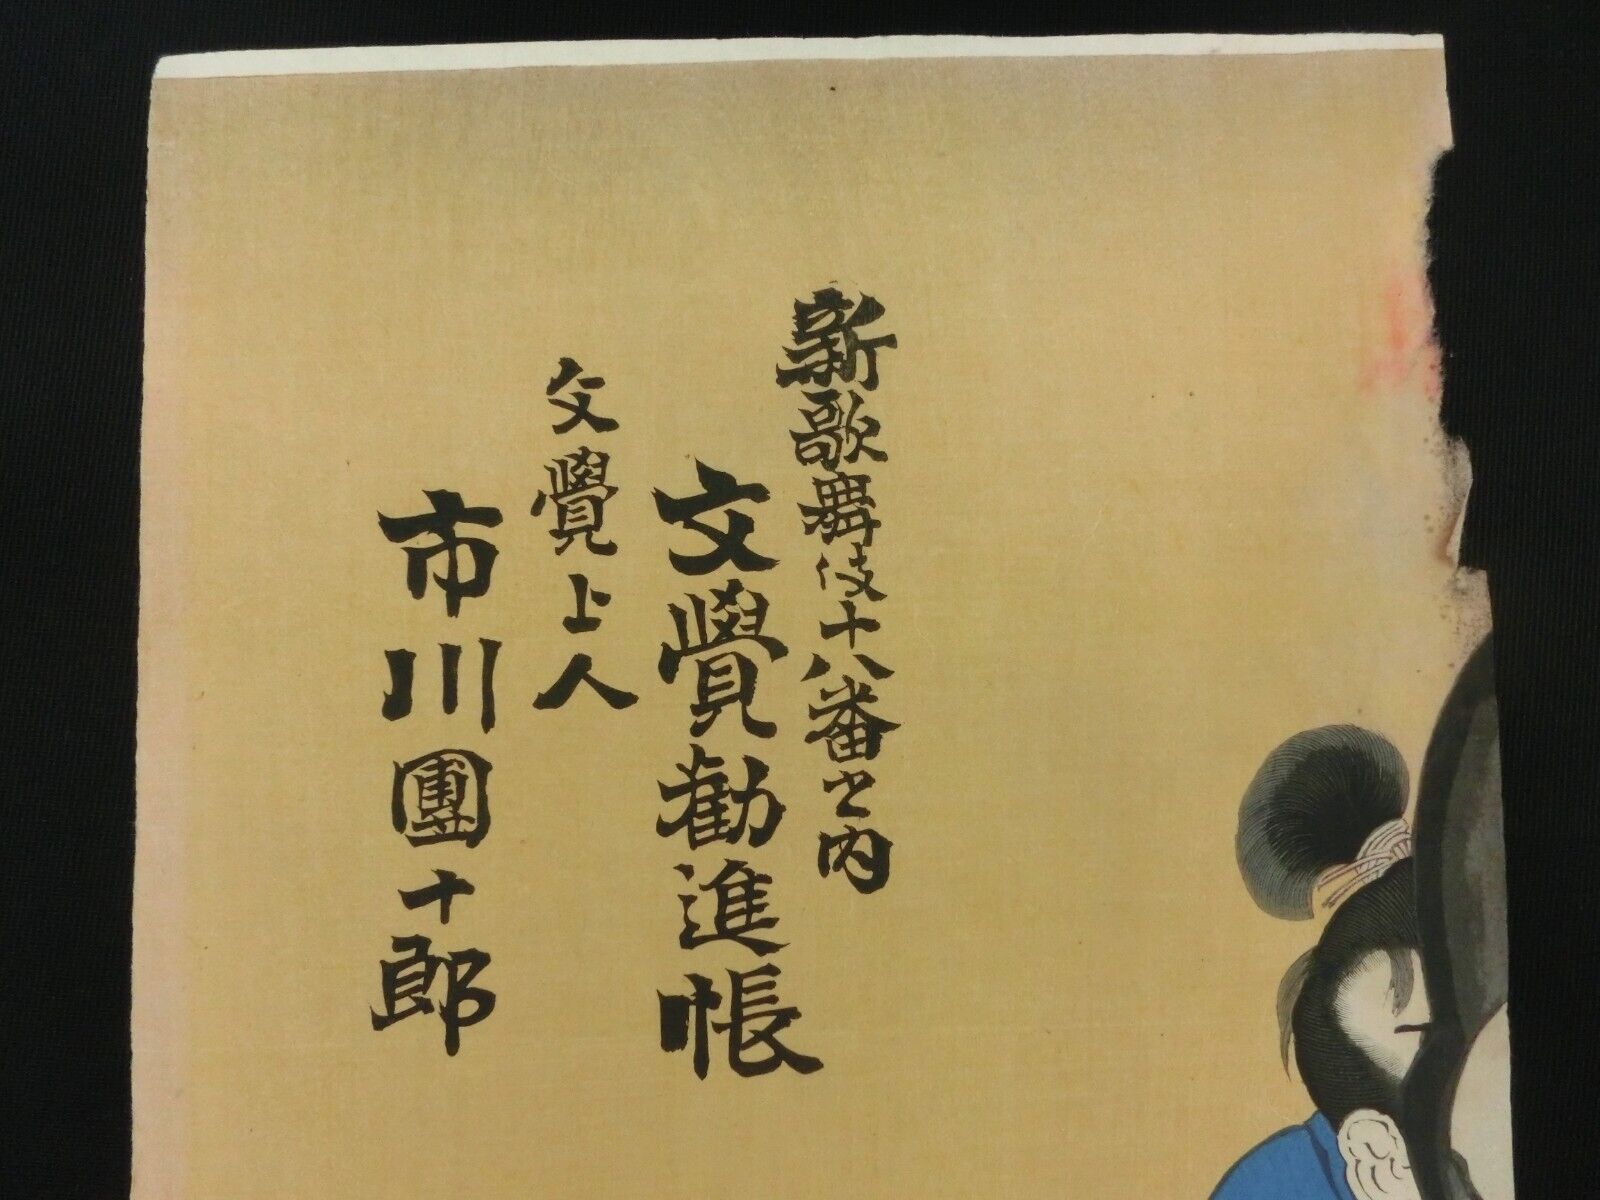 新歌舞伎十八番之内
文覺勸進帳
文覺上人
市川團十郎